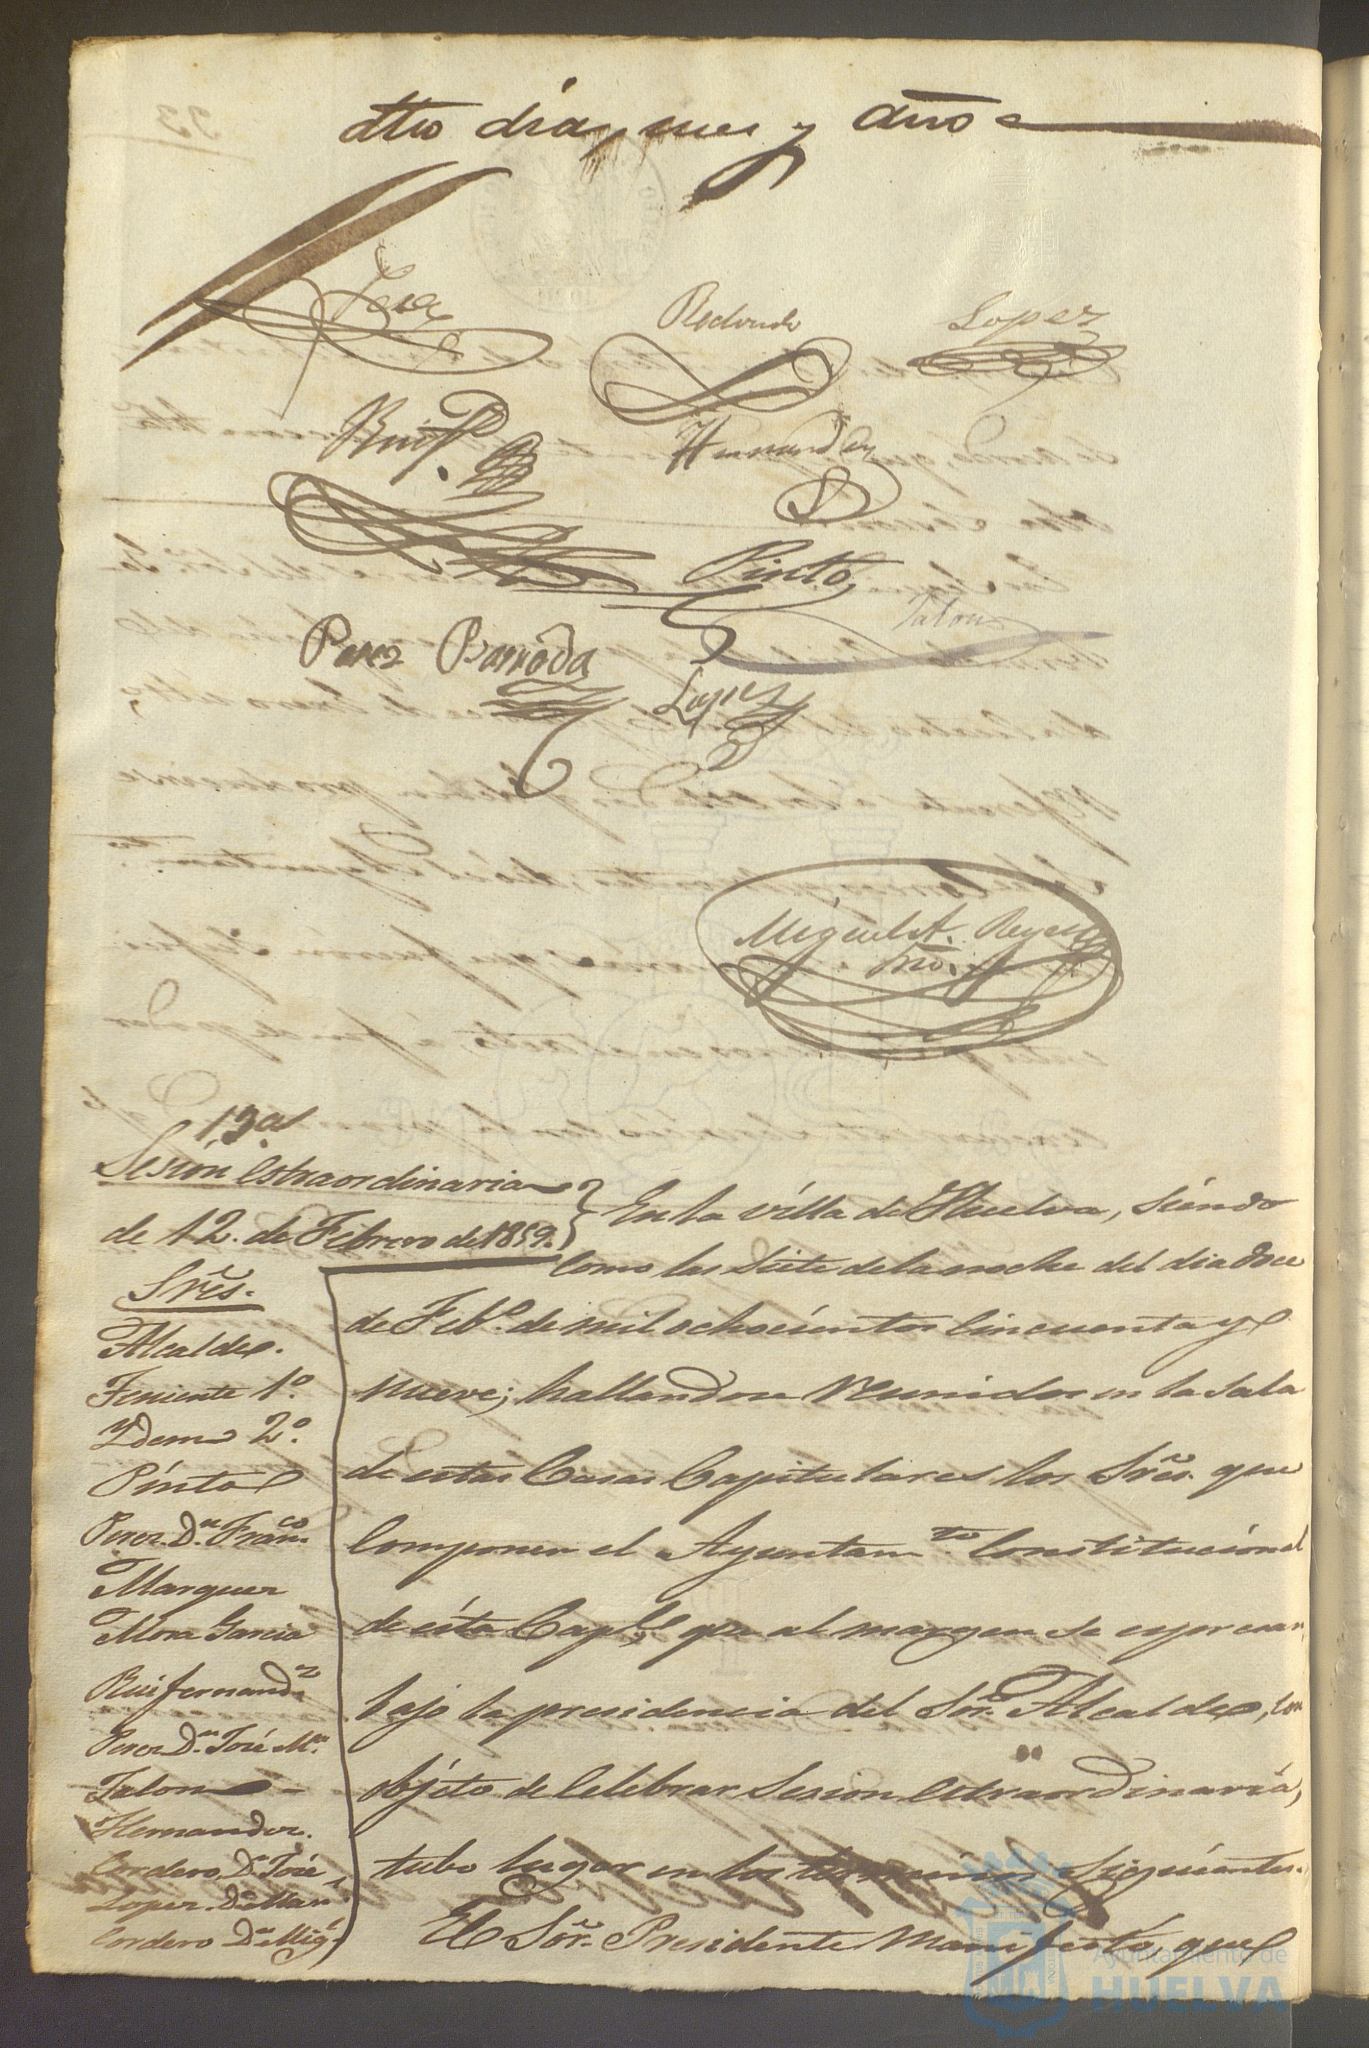 dho dia, mes y año
Redondo Lopez
Ruiz
Hernandez
Pinto
Talon
Perez Barroda
Lopez
Miguel A. Reyes
Srio.
13ª
Sesion extraordinaria
de 12. de Febrero de 1859.
Sres.
Alcalde.
Teniente 1º.
Ydem 2º.
Pinto
Perez Dn. Franco.
Marquez
Mora Garcia
Ruifernandz.
Perez Dn. José Ma.
Talon
Hernandez.
Cordero Dn. José
Lopez Dn. Man.
Cordero Dn. Migl.
En la villa de Huelva, siendo
como las siete de la noche del dia doce
de Febo. de mil ochocientos cincuenta y
nueve; hallandose reunidos en la sala
de estas Casas Capitulares los Sres. que
componen el Ayuntamto. Constitucional
de ésta Capl. qe. al margen se espresan,
bajo la presidencia del Sor. Alcalde, con
objeto de celebrar sesion estraordinaria,
tubo lugar en los terminos siguientes.
El Sor. Presidente manifestó que
Ayuntamiento de
HUELVA